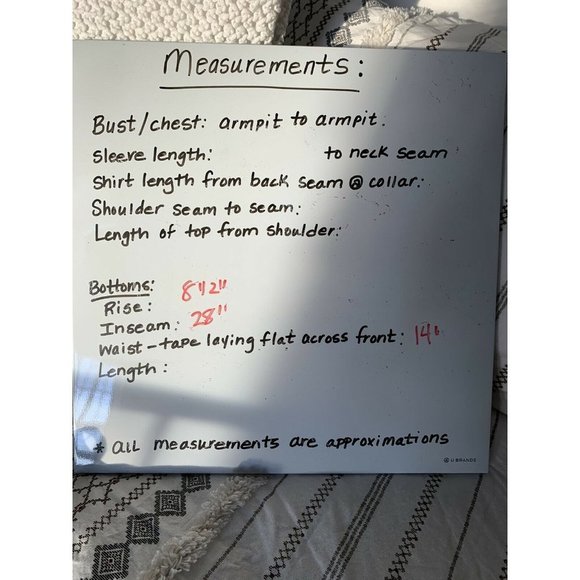 Measurements:
Bust/chest: armpit to armpit.
Sleeve length: to neck seam
Shirt length from back seam @ collar:
Shoulder seam to seam:
Length of top from shoulder:
Bottoms:
Rise: 8"2"
Inseam: 28"
Waist-tape laying flat across front: 14"
Length:
* all measurements are approximations
U BRANDS